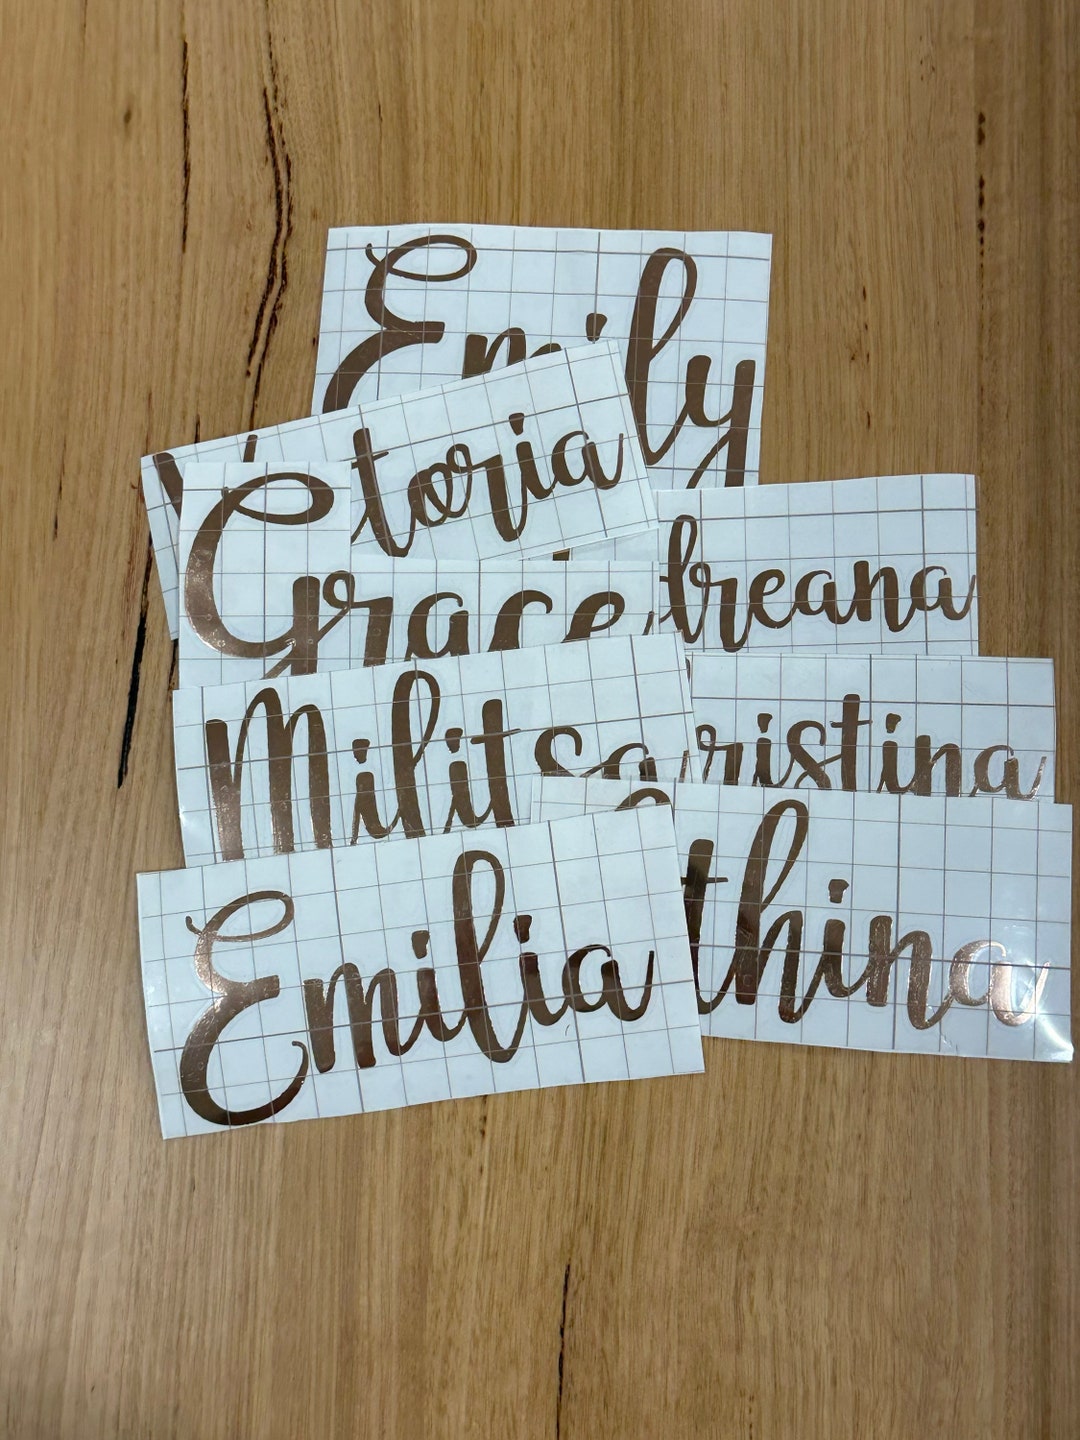 Emily
toria
Grace
breana
Militsa
ristina
thina
Emilia